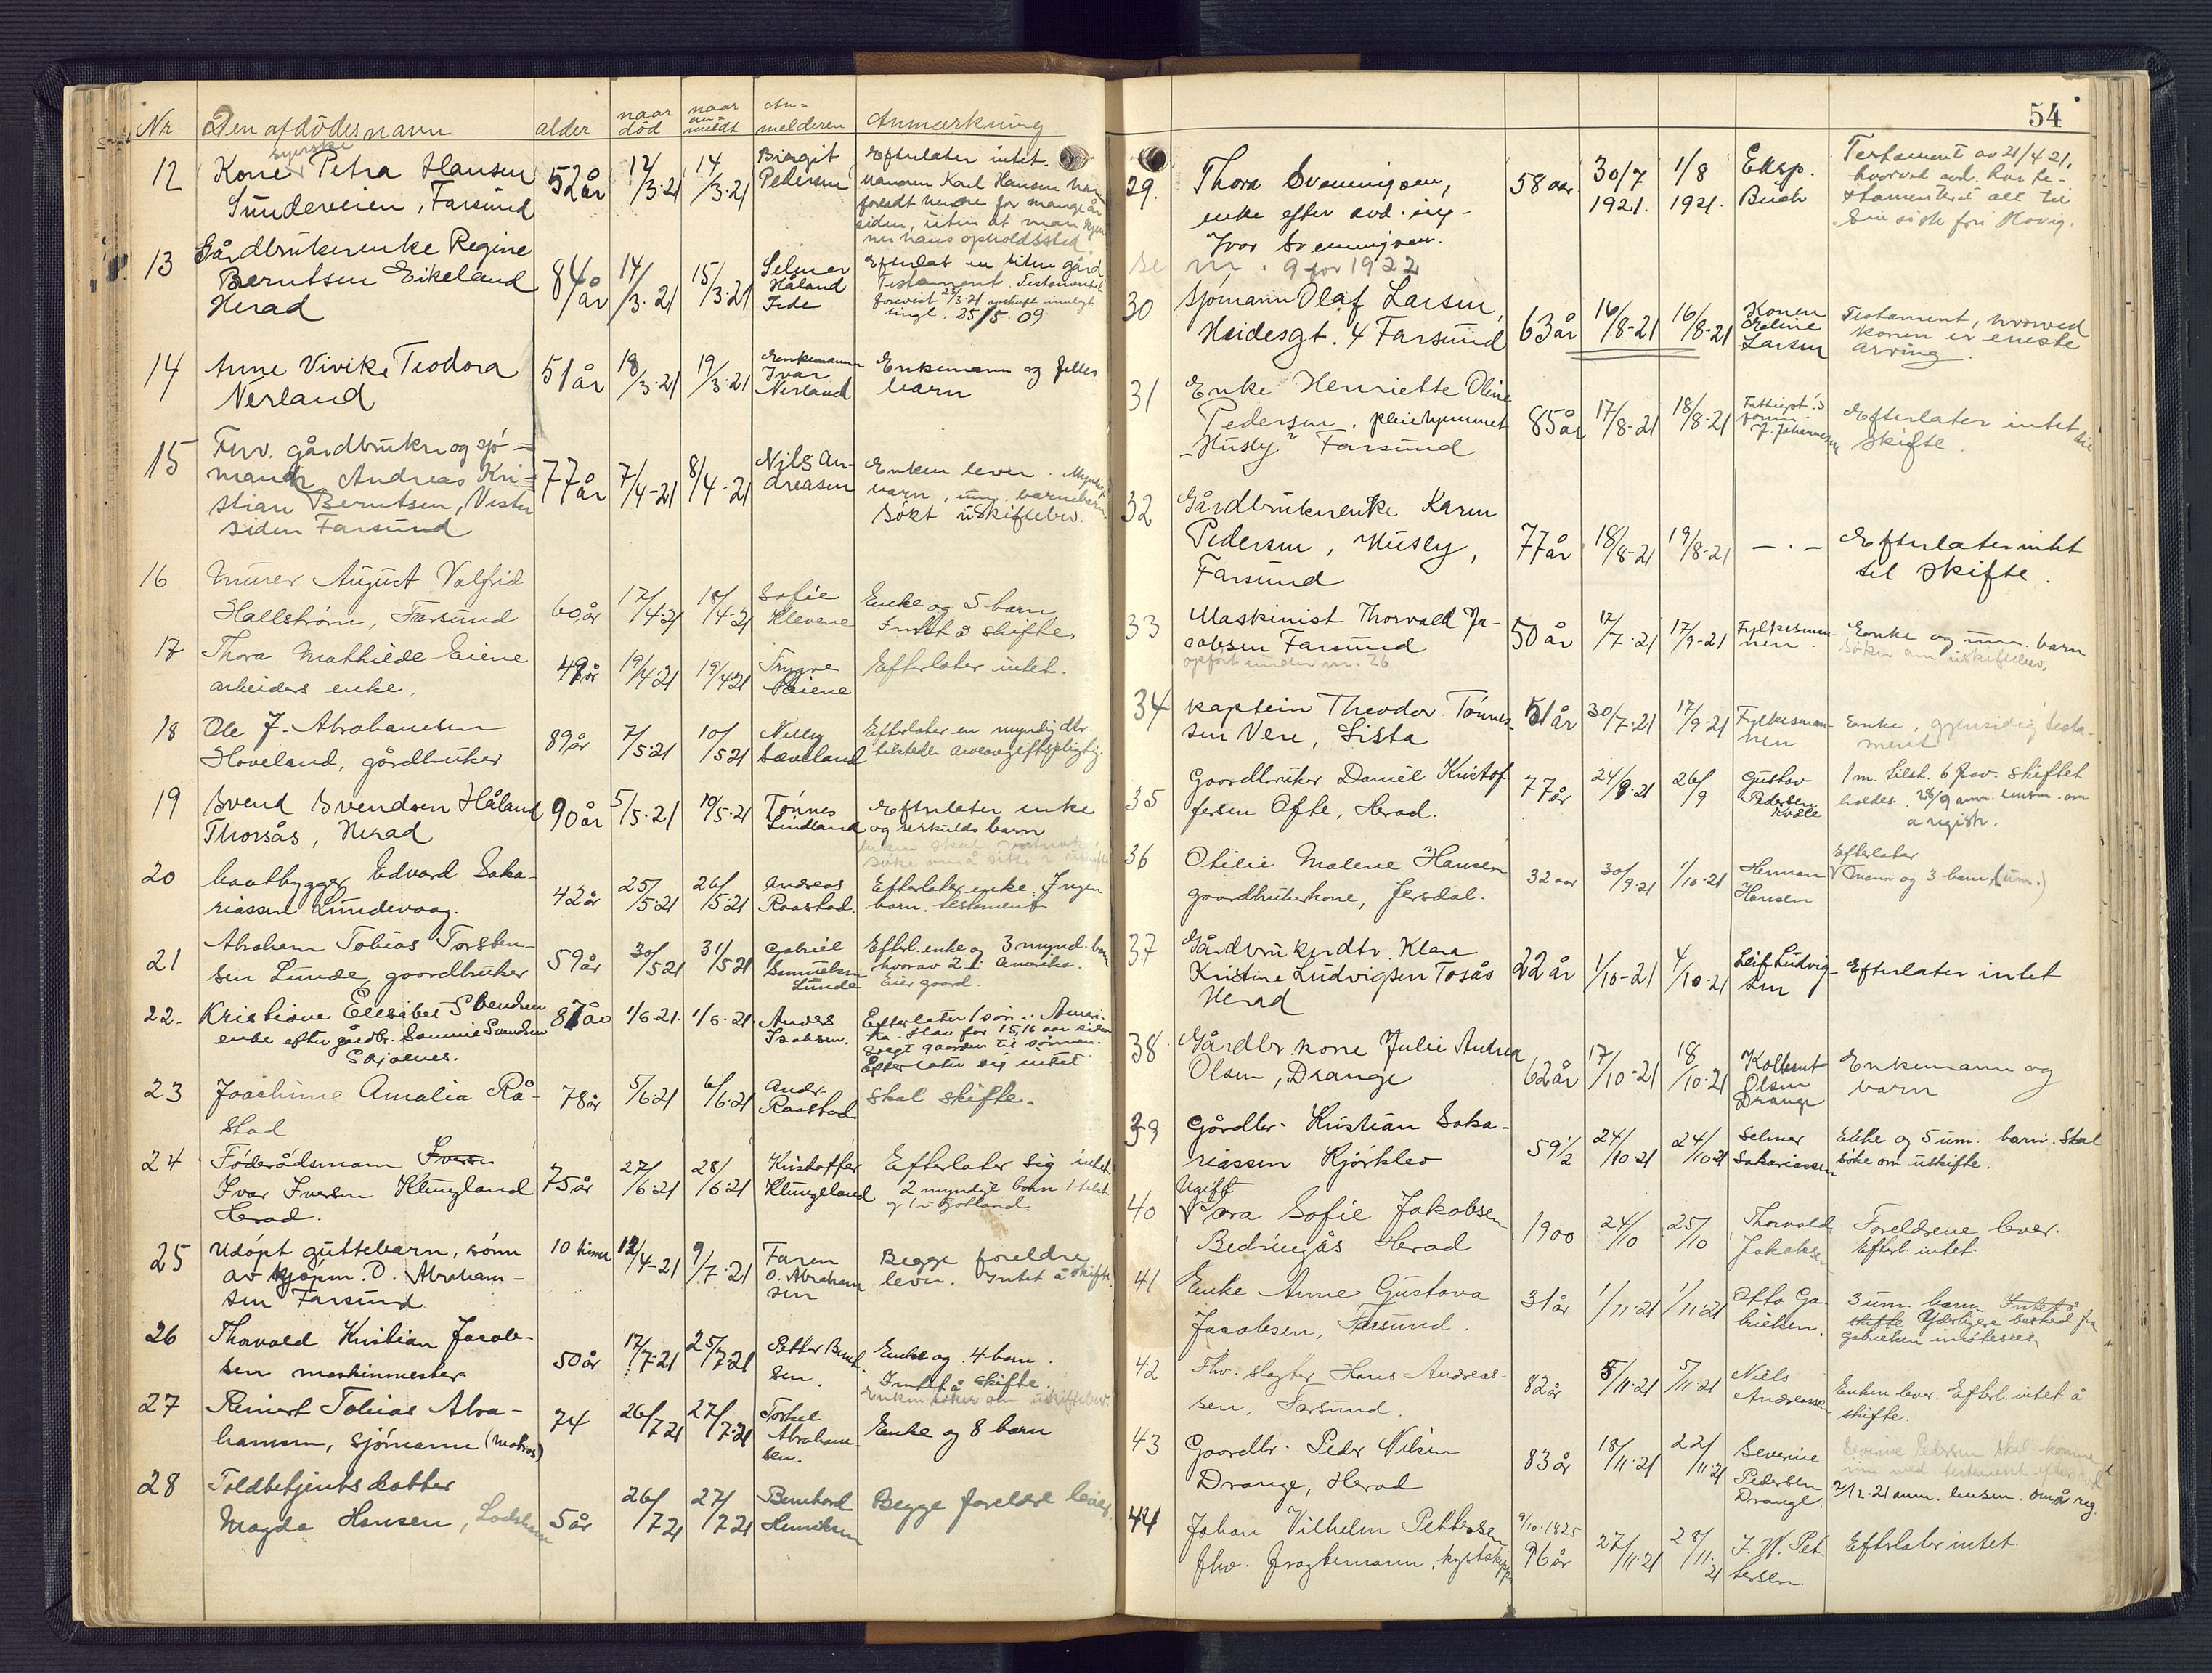 Nr Den afdödes navn alder naar död naar an- meldt An- melderen Anmærkning
12 Kone syerske Petra Hansen 52 år 12/3.21 14/3.21 Birgit Pedersen Efterlater intet.
Sundeveien, Farsund
Manden Karl Hansen har
forladt henne for mange år
siden, uten at man kjen
ner hans opholdssted
13 Gårdbrukerenke Regine 84 år 14/3.21 15/3.21 Selmer Håland
Berntsen Eikeland
Herad
Efterlat en liten gård
Testament.
14 Anne Vivike Teodora 51 år 18/3.21 19/3.21 Enkemann Ivar Nerland Enkemann og felles
Nerland barn
15 Fhv. gårdbruker og sjö- 77 år 7/4-21 8/4.21 Nils An- dreasen Enken lever. Myndige
mand Andreas Kri-
stian Berntsen, Vester
siden Farsund
barn, um. barnebarn.
Søkt uskiftebev.
16 Murer August Valfrid 60 år 17/4.21 18/4.21 Sofie Klevene Enke og 5 barn
Hallstrøm, Farsund Intet å skifte.
17 Thora Mathilde Eiene 49 år 19/4.21 19/4.21 Trygve Eiene Efterlater intet.
arbeiders enke,
18 Ole J. Abrahamsen 89 år 7/5.21 10/5.21 Nelly Sæveland Efterlater en myndig dtr.
Hoveland, gårdbruker tilstede arveavgiftspligtig.
19 Svend Svendsen Håland 90 år 5/5.21 10/5.21 Tønnes Lindland Efterlater enke
Thorsås, Herad og særkulds barn
20 baatbygger Edvard Saka- 42 år 25/5.21 26/5.21 Andreas Raastad. Efterlater enke. Ingen
riassen Lundevaag. barn. testament
21 Abraham Tobias Torsten- 59 år 30/5 21 31/5 21 Gabriel Samuelsen Lunde Efterl. enke og 3 mynd. barn
sen Lunde, goordbruker hvorav 2 i Amerika.
Eier goord.
22. Kristiane Elisabet Svendsen 87 år 1/6.21. 1/6.21. Anders Isaksen. Efterlater 1 søn i Ameri-
enke efter gårdbr. Samme Svendsen ka.
Skjønes. for 15, 16 aar siden
Solgt gaarden til sønnen.
Efterlater sig intet
23 Joachime Amalia Rå- 78 år 5/6 21 6/6.21 Andr. Raastad skal skifte.
stad
24 Föderådsmann Iversen 75 år 27/6 21 28/6 21 Kristoffer Klungeland Efterlater sig intet.
Ivar Iversen Klungland 2 myndige barn 1 tilst.
Herad. og 1 i Gotland.
25 Udöpt guttebarn, sönn 10 timer 12/4-21 9/7.21 Faren O. Abraham sen Begge foreldre
av kjöpm. O. Abraham- lever. Intet å skifte
sen Farsund
26 Thorvald Kristian Jacob- 50 år 17/7.21 25/7.21 Petter Bernt- sen. Enke og 4 barn.
sen maskinmester Intet å skifte.
Enken søker om uskiftebev.
27 Reinert Tobias Abra- 74 26/7 21 27/7.21 Torkel Abraham- sen. Enke og 8 barn
hamsen, sjömann (matros)
28 Toldbetjents datter 5 år 26/7 21 27/7 21 Bernhard Henriksen Begge foreldre lever.
Magda Hansen,
54
29. Thora Svenningsen, 58 aar. 30/7 1921. 1/8 1921. Eksp. Buch Testament av 21/4 21,
enke efter avd. ing- hvorved avd. har te-
Ivar Svenningsen. stamenteret alt til
se nr. 9 for 1922
30 Sjömann Olaf Larsen, 63 år 16/8-21 16/8-21 Konen Eline Larsen Testament, hvorved
Heidesgt. 4 Farsund konen er eneste
arving.
31 Enke Henriette Oline 85 år 17/8-21 18/8-21 J. Johannesen Efterlater intet til
Pedersen, pleiehjemmet skifte.
"Husly" Farsund
32 Gårdbrukerenke Karen 77 år 18/8-21 19/8-21 — . — Efterlater intet
Pedersen, Husly, til skifte.
Farsund
33 Maskinist Thorvald Ja- 50 år 17/7.21 17/9-21 Fylkesman- nen. Enke og um. barn
cobsen Farsund søker om uskiftebev.
opført under nr. 26
34 Kaptein Theodor Tönnes- 51 år 30/7.21 17/9.21 Fylkesman- nen Enke, gjensidig testa-
sen Vere, Lista ment
35 Goordbruker Daniel Kristof 77 år 24/9.21 26/9 Gustav Pedersen Kvåle 1 m. tilst. 6 frav. skiftet
fersen Ofte, Herad. holdes. 28/9 anm. lensm. om
å regist.
36 Otilie Malene Hansen 32 aar 30/9.21 1/10.21 Herman Hansen Efterlater
goordbrukerkone, Jersdal. Mann og 3 barn (um.)
37 Gårdbrukerdtr. Klara 22 år 1/10-21 4/10.21 Leif Ludvig- sen Efterlater intet
Kristine Ludvigsen Tosås
Herad
38 Gårdbr. kone Julie Andrea 62 år 17/10-21 18/10.21 Kolbent Olsen Drange Enkemann og
Olsen, Drange barn
39 Gårdbr. Kristian Saka- 59 1/2 24/10 21 24/10 21 Selmer Sakariassen Enke og 5 um. barn. Skal
riassen Kjörklev søke om uskifte.
40 Ugift Vara Sofie Jakobsen 1900 24/10 25/10 Thorvald Jakobsen Foreldrene lever.
Bedringås Herad Efterl. intet.
41 Enke Anne Gustava 31 år 1/11.21 1/11.21 Otto Ga- brielsen. 3 um. barn Intet å
Jacobsen, Farsund. skifte Yderligere besked fra
Gabrielsen imøtesees.
42 Fhv. slagter Hans Andreas- 82 år 5/11.21 5/11.21 Niels Andreassen Enken lever. Efterl. intet å
sen, Farsund. skifte.
43 Goordbr. Peder Nilsen 83 år 18/11.21 22/11.21 Severine Pedersen Drange. Severine Pedersen skal komme
Drange, Herad inn med testament
2/12.21 anm. lensm. om å reg.
44 Johan Vilhelm Pettersen 9/10.1825 96 år 27/11.21 28/11.21 J. W. Pet- tersen. Efterlater intet.
fhv. fragtemann, kystskipper